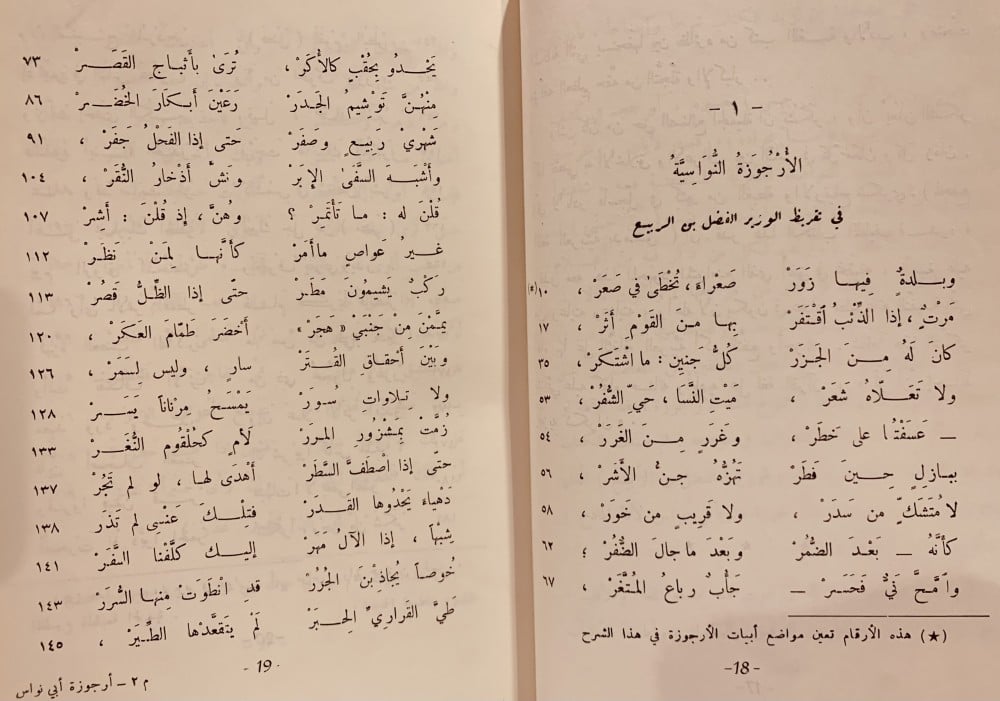 - ١ -
الأُرْجُوزَةُ النُّوَاسِيَّةُ
في تقريظ الوزير الفضل بن الربيع
وبلدةٍ فيها زَوَرْ صَعْراءَ، تُخْطَىٰ في صَعَرْ، ١٠(*)
مَرْتٍ، إذا الذِّئْبُ اقْتَفَرْ بها مِنَ القَوْمِ أَثَرْ، ١٧
كانَ لَهُ مِنَ الجَزَرْ كُلُّ جَنينٍ: ما اشْتَكَرْ، ٣٥
ولا تَعَلّاهُ شَعَرْ، مَيْتِ النَّسَا، حَيِّ الشُّفُرْ، ٥٣
ــ عَسَفْتُها على خَطَرْ، وغَرَرٍ مِنَ الغَرَرْ، ٥٤
ببازِلٍ حِينَ فَطَرْ تَهُزُّهُ جِنُّ الأَشَرْ، ٥٦
لا مُتَشَكٍّ من سَدَرْ، ولا قَريبٍ من خَوَرْ، ٥٨
كأنَّهُ ــ بَعْدَ الضُّمُرْ وبَعْدَ ما جالَ الضُّفُرْ؛ ٦٢
وامَّحَّ نَيٌّ فَحَسَرْ ــ جَأْبٌ رباعُ المُتَّغَرْ، ٦٧
(★) هذه الأرقام تعين مواضع أبيات الأرجوزة في هذا الشرح
-18-
يَحْدُو بِحُقْبٍ كالأُكَرْ، تُرَىٰ بأَثْباجِ القَصَرْ ٧٣
مِنْهُنَّ تَوْشِيمُ الجَدَرْ رَعَيْنَ أَبكارَ الخُضَرْ ٨٦
شَهْرَيْ رَبيعٍ وصَفَرْ حَتى إذا الفَحْلُ جَفَرْ، ٩١
وأَشْبَهَ السَّفَىٰ الإبَرْ ونَشَّ أَذْخارُ النُّقَرْ، ١٠٤
قُلْنَ له: ما تَأْتَمِرْ؟ وهُنَّ، إذ قُلْنَ: أَشِرْ ١٠٧
غيرُ عَواصٍ ما أَمَرْ كأنَّها لِمَنْ نَظَرْ ١١٢
رَكْبٌ يَشِيمُونَ مَطَرْ حتّى إذا الظِّلُّ قَصُرْ ١١٣
يمَّمْنَ مِنْ جَنْبَيْ «هَجَرْ» أَخْضَرَ طَمّامَ العَكَرْ، ١٢٠
وبَيْنَ أَحْقاقِ القُتَرْ سارٍ، وليس لِسَمَرْ، ١٢٦
ولا تِلاواتِ سُوَرْ يَمْسَحُ مِرْناناً يَسَرْ ١٢٨
زُمَّتْ بِمَشْزُورِ المِرَرْ لَأْمٍ كحُلْقُومِ النُّغَرْ ١٣٣
حتّى إذا اصْطَفَّ السَّطَرْ أَهْدَى لها، لو لم تَجُرْ ١٣٧
دَهْياءَ يَحْدُوها القَدَرْ فتِلْكَ عَنْسي لم تَذَرْ ١٣٨
شِبْهاً، إذا الآلُ مَهَرْ إليك كلَّفْنا السَّفَرْ ١٤١
خُوصاً يُجاذِبْنَ الجُرُرْ قدِ انْطَوَتْ مِنها السُّرَرْ ١٤٣
طَيَّ القَراريِّ الحِبَرْ لَمْ يتقَعَّدْها الطِّيَرْ، ١٤٥
-19-
م ٢ - أرجوزة أبي نواس